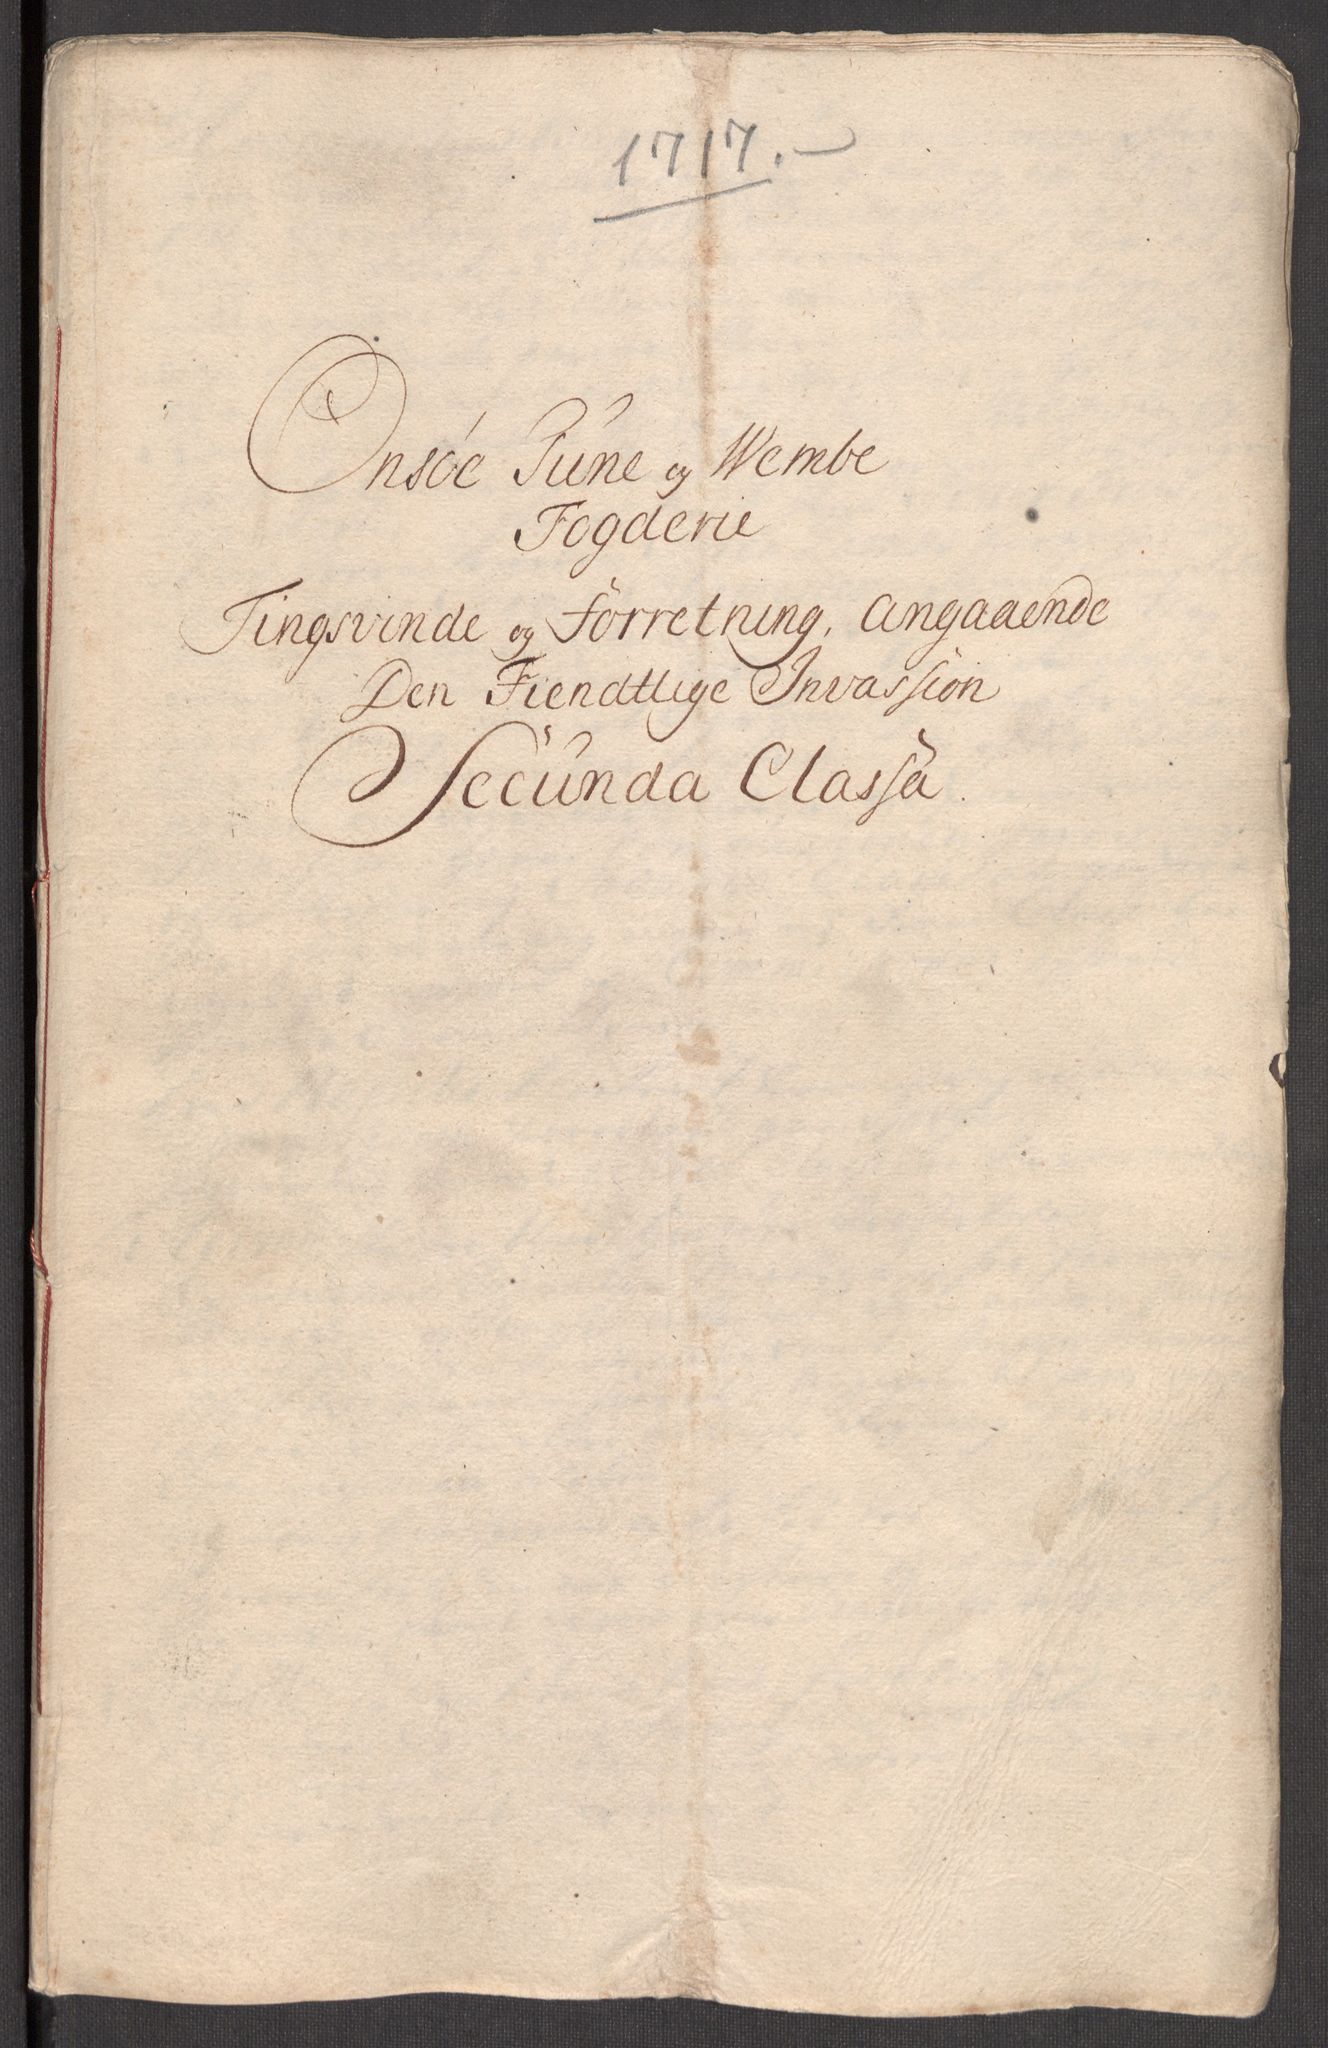 1717.
Onsöe Tune og Wembe
Fogderie
Tingsvinde og Forretning, angaaende
Den Fiendtlige Invassion
Secunda Classa.